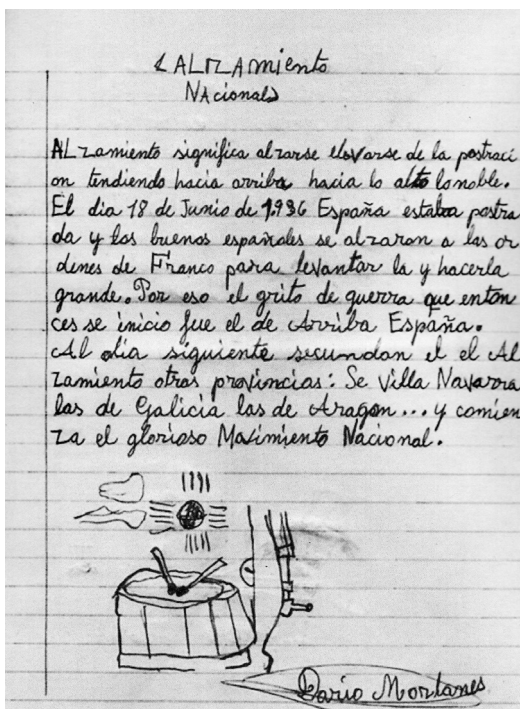 ALZAmiento
NAcional
ALzamiento significa alzarse elevarse de la postraci
on tendiendo hacia arriba hacia lo alto lo noble.
El dia 18 de Junio de 1.936 España estaba postra
da y los buenos españales se alzaron a las or
denes de Franco para levantar la y hacerla
grande. Por eso el grito de guerra que enton
ces se inicio fue el de Arriba España.
Al dia siguiente secundan el el Al
zamiento otras provincias: Se villa Navarra
las de Galicia las de Aragon... y comien
za el glorioso Movimiento Nacional.
Dario